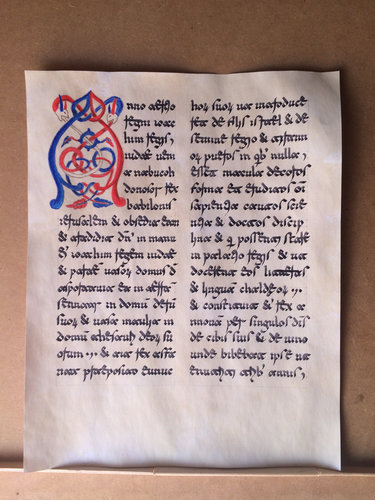 Anno tertio
regni ioac
him regis
iudae uen
it nabucho
donosor rex
babilonis
ierusalem & obsedit eam
& tradidit dns in manu
ei ioachim regem iudae
& partem uasor domus di
asportauit ea in terra
sennaar in domu dei
suor & uasa intulit in
domu thesauri deor su
orum & ait rex asfa
naz preposito eunuc
hor suor ut introduce
ret de filiis israel & de
semine regio & tirannor
pueros in qb nulla
esset macula decoros
forma et eruditos oi
sapientia cautos scie
ntia & doctos discip
lina & q possent stare
in palatio regis & ut
doceret eos litteras
& linguam chaldeor
& constituit ei rex a
nnona per singulos dies
de cibis suis & de uino
unde bibebat ipse ut
enutriti annis